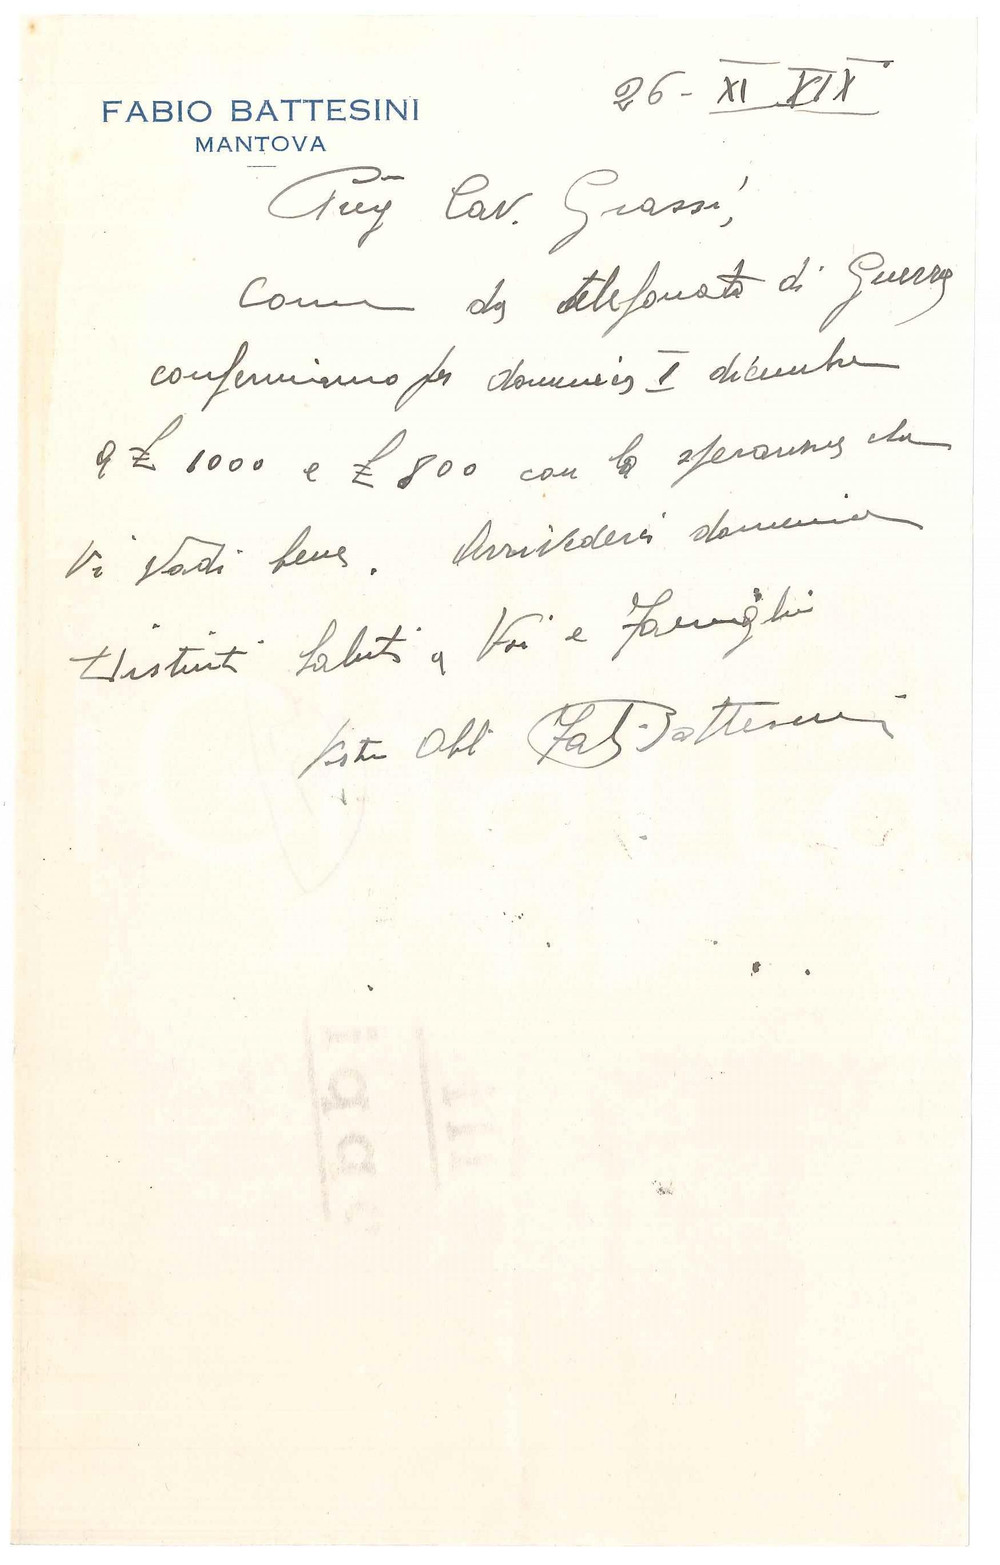 26 - XI XIX
FABIO BATTESINI
MANTOVA
Preg Cav. Grassi,
Come da telefonata di Guerra
confermiamo per domenica I dicembre
a £ 1000 e £ 800 con la speranza che
Vi vadi bene. Arrivederci domenica
Distinti Saluti a Voi e Famiglia
Vostro Obb Fab. Battesini